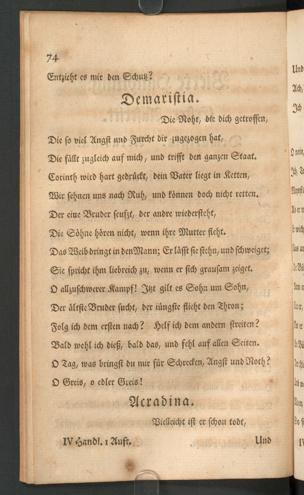 74
Entzieht es mir den Schutz?
Demaristia.
Die Noht, die dich getroffen,
Die so viel Angst und Furcht dir zugezogen hat,
Die fällt zugleich auf mich, und trifft den ganzen Staat.
Corinth wird hart gedrückt, dein Vater liegt in Ketten,
Wir sehnen uns nach Ruh, und können doch nicht retten.
Der eine Bruder seufzt, der andre wiedersteht,
Die Söhne hören nicht, wenn ihre Mutter fleht.
Das Weib dringt in den Mann; Er lässt sie flehn, und schweiget;
Sie spricht ihm liebreich zu, wenn er sich grausam zeiget.
O allzuschwerer Kampf! Itzt gilt es Sohn um Sohn,
Der ältste Bruder sucht, der jüngste flieht den Thron;
Folg ich dem ersten nach? Helf ich dem andern streiten?
Bald wehl ich dieß, bald das, und fehl auf allen Seiten.
O Tag, was bringst du mir für Schrecken, Angst und Noth?
O Greis, o edler Greis!
Acradina.
Vielleicht ist er schon todt,
IV Handl. 1 Auft.
Und